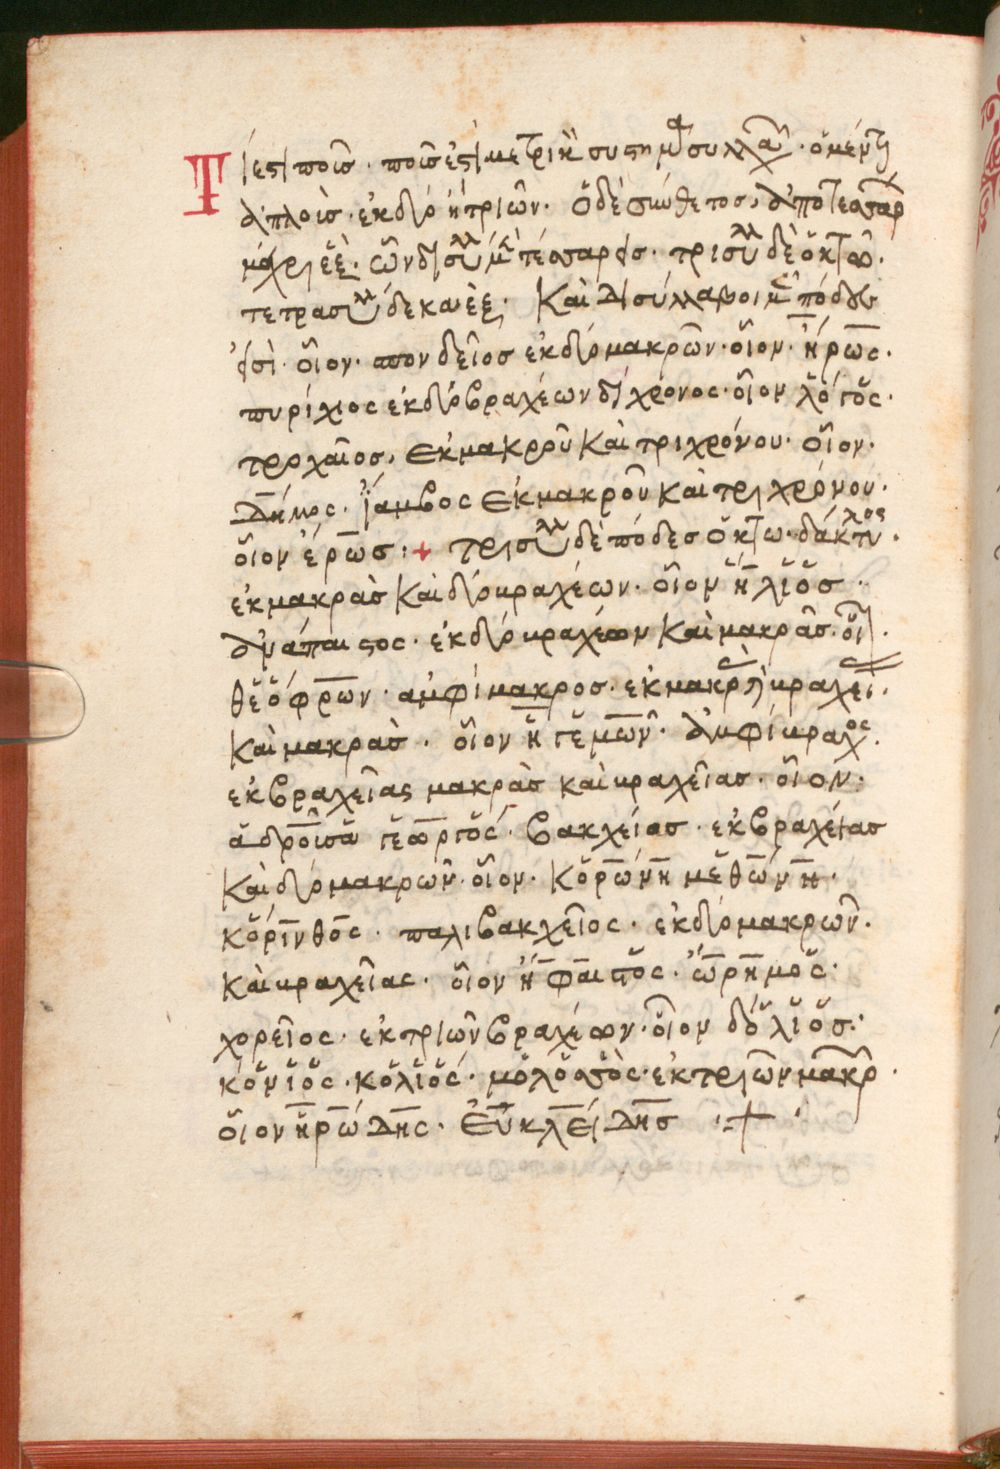 Τί ἐστι ποῦσ · ποῦσ ἐστὶ μετρικὴ συστημα συλλαβῶν · ὁ μέν ἐστιν
ἁπλοῦσ · ἐκ δύο ἢ τριῶν · ὁ δὲ σύνθετοσ, ἀπὸ τεσσάρων
μέχρι ἓξ · ὧν δισύλλαβοι μὲν τέσσαρεσ · τρισύλλαβοι δὲ ὀκτώ ·
τετρασύλλαβοι δεκαὲξ · Καὶ δισύλλαβοι μὲν πόδεσ
εἰσὶ · οἷον · σπονδεῖοσ ἐκ δύο μακρῶν · οἷον · ἥρως ·
πυρίχιος ἐκ δύο βραχέων δίχρονος · οἷον λόγος ·
τροχαῖοσ, ἐκ μακροῦ καὶ τριχρόνου · οἷον ·
Δῆμος · ἴαμβος ἐκ μακροῦ καὶ τριχρόνου ·
οἷον ἔρωσ :+ τρισύλλαβοι δὲ πόδεσ ὀκτω · δάκτυλος ·
ἐκ μακρᾶσ καὶ δύο βραχέων · οἷον ἥλιοσ ·
ἀνάπαιστος · ἐκ δύο βραχέων καὶ μακρᾶσ · οἷον ·
θεόφρων · ἀμφίμακροσ · ἐκ μακρᾶς καὶ βραχείας ·
καὶ μακρᾶσ · οἷον ἡγεμών · ἀμφίβραχος ·
ἐκ βραχείας μακρᾶσ καὶ βραχείασ · οἷον ·
ἄδρουσα γεωργός · βακχείασ · ἐκ βραχείασ
καὶ δύο μακρῶν · οἷον · κορώνη μεθώνη ·
κόρινθος · παλιβακχεῖος · ἐκ δύο μακρῶν ·
καὶ βραχείας · οἷον ἥφαιστος · ὤρημος ·
χορεῖος · ἐκ τριῶν βραχέων · οἷον δόλιοσ ·
κόνιος · κόλιος · μολοσσὸς · ἐκ τριῶν μακρῶν ·
οἷον ἡρώδης · Εὐκλείδησ :+ ·